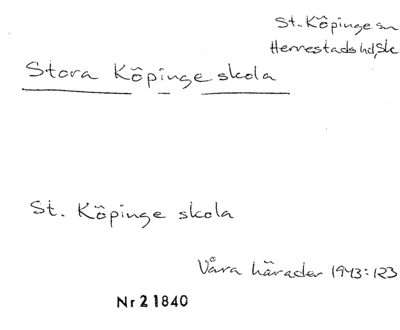 St. Köpinge sn
Herrestads hd, Sk
Stora Köpinge skola
St. Köpinge skola
Våra härader 1943:123
Nr 21840